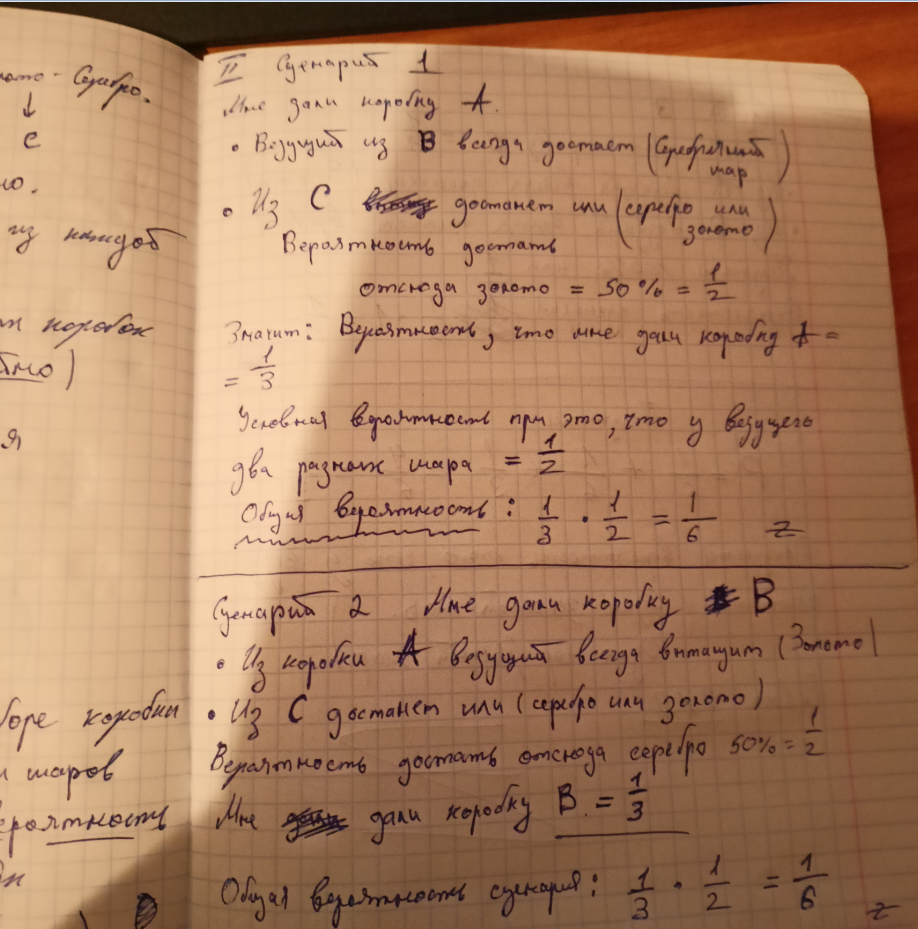 Серебро.
↓
С
но.
из каждой
коробок
но)
я
боре коробки
шаров
вероятность
II Сценарий 1
Мне дали коробку A.
• Ведущий из B всегда достает (Серебряный
шар)
• Из C достанет или (серебро или
золото)
Вероятность достать
отсюда золото = 50% = 1/2
Значит: Вероятность, что мне дали коробку A =
= 1/3
Условная вероятность при это, что у ведущего
два разных шара = 1/2
Общая вероятность: 1/3 · 1/2 = 1/6
Сценарий 2 Мне дали коробку B
• Из коробки A ведущий всегда вытащит (Золото)
• Из C достанет или (серебро или золото)
Вероятность достать отсюда серебро 50% = 1/2
Мне дали коробку B = 1/3
Общая вероятность сценария: 1/3 · 1/2 = 1/6